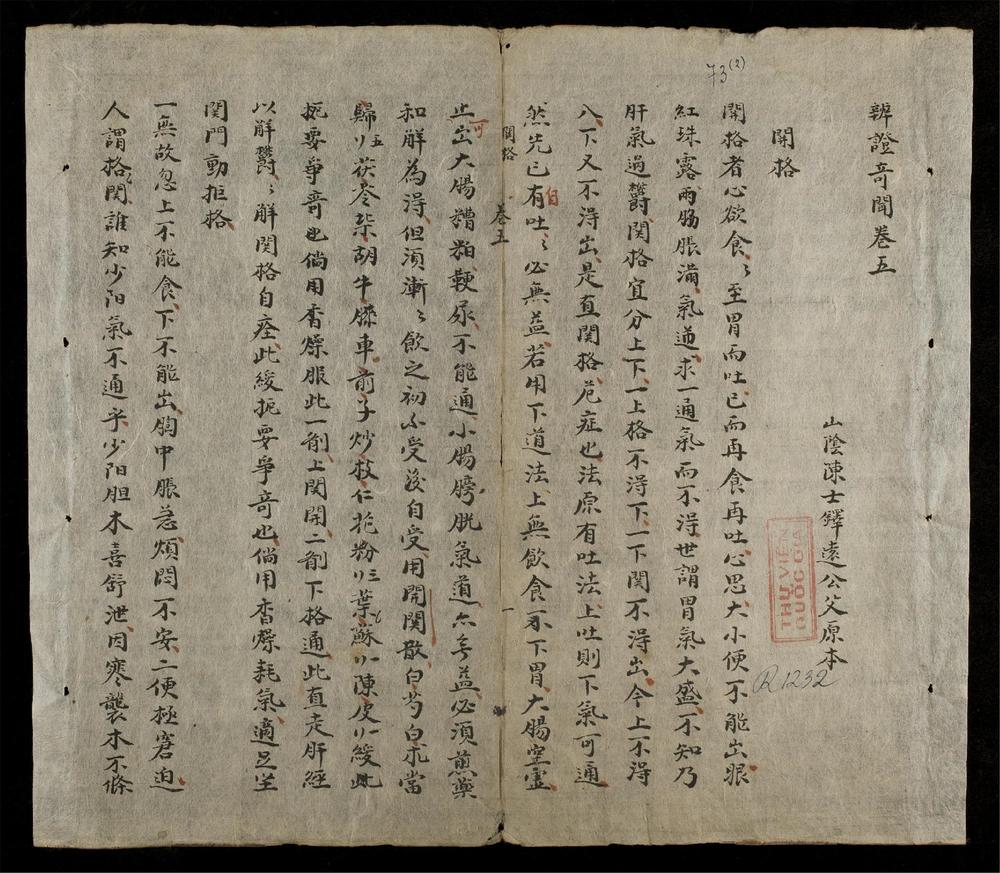 73(2)
辨證奇聞卷五
山陰陳士鐸遠公父原本
THƯ VIỆN
QUỐC GIA
R1232
関格
関格者心欲食〻至胃而吐已而再食再吐心思大小便不能出眼
紅珠露兩脇脹滿氣逆求一通氣而不得世謂胃氣大盛不知乃
肝氣過欝関格宜分上下一上格不得下一下関不得出今上不得
入下又不得出是直関格危症也法原有吐法上吐則下氣可通
然先已有自吐〻必無益若用下道法上無飲食不下胃大腸空虛
関格 卷五 一
止出大腸糟粕硬尿不能通小腸膀胱氣道亦無益必須煎藥
可和解為淂但須漸〻飲之初不受後自受用開関散白芍白朮當
歸五刂茯苓柴胡牛膝車前子炒枝仁花粉刂三葉蘇刂陳皮刂緩此
扼要爭竒也倘用香燥服此一劑上関開二劑下格通此直走肝經
以解欝〻解関格自痊此緩扼要爭奇也倘用香燥耗氣適足坐
関門動拒格
一無故忽上不能食下不能出胸中脹急煩悶不安二便極窘迫
人謂格関誰知少阳氣不通乎少阳胆木喜舒泄因寒襲木不條